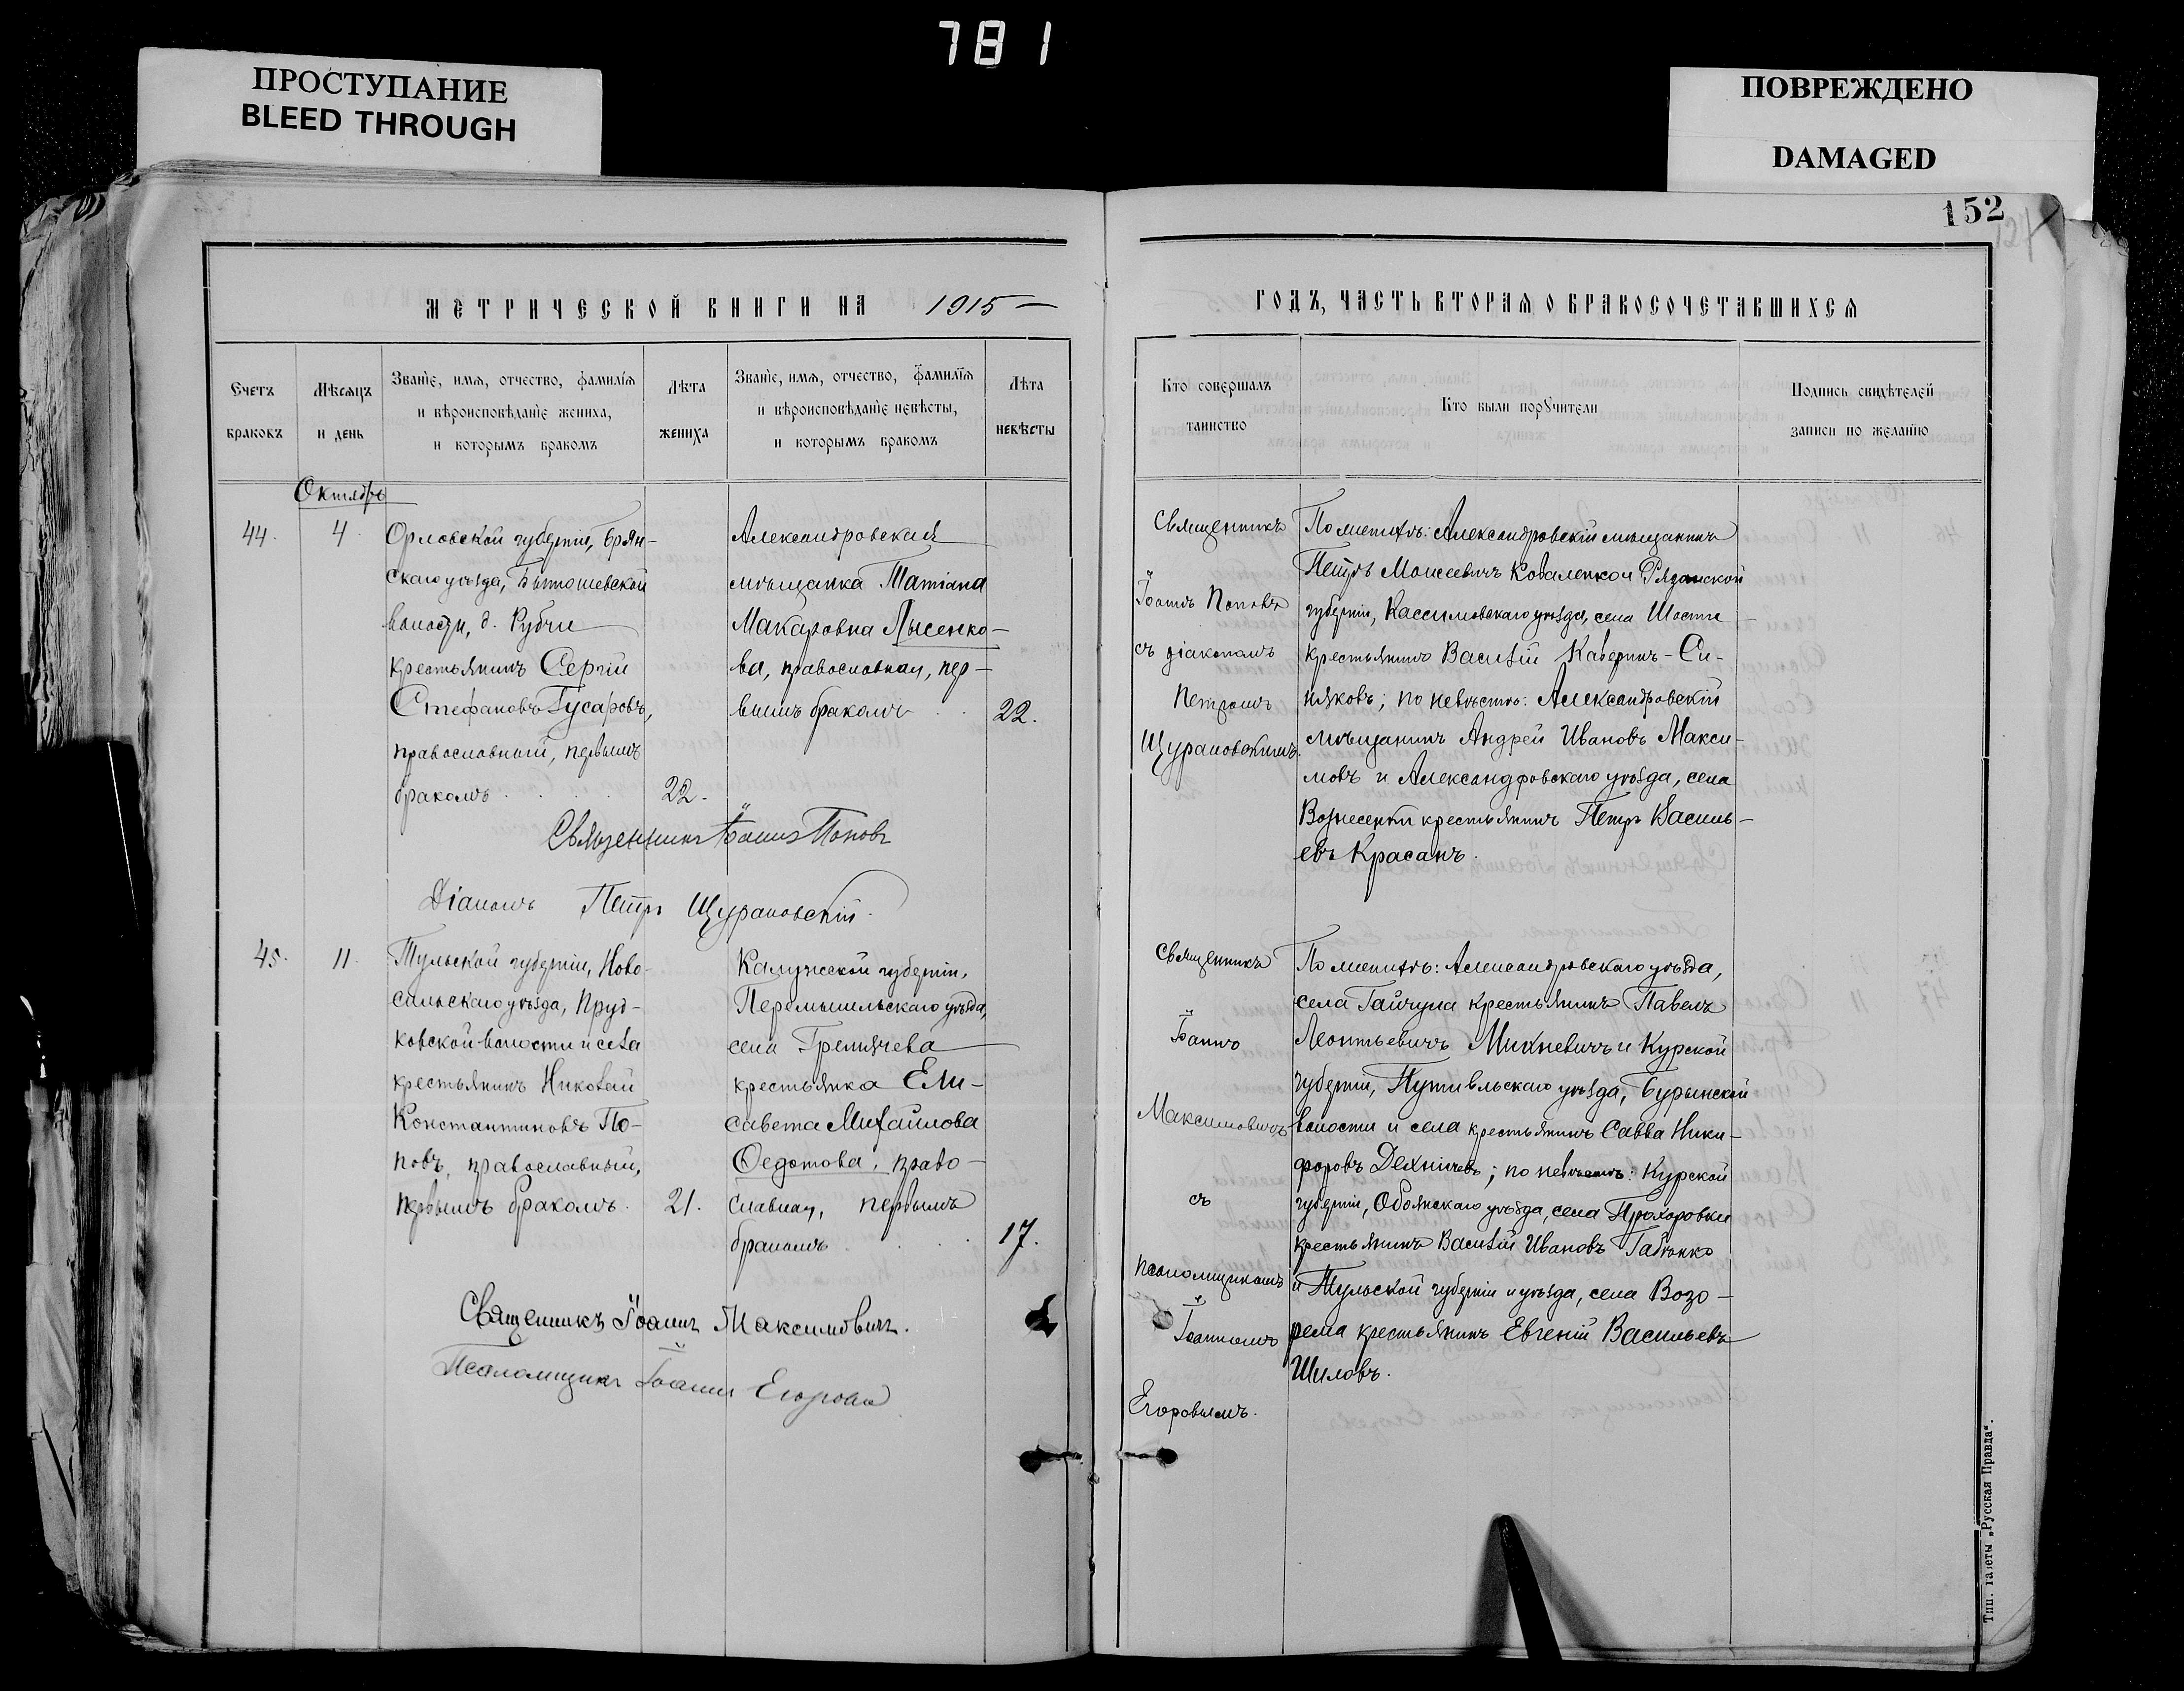 781
ПРОСТУПАНИЕ
BLEED THROUGH
ПОВРЕЖДЕНО
DAMAGED
152
МЕТРИЧЕСКОЙ КНИГИ НА 1915
Счетъ браковъ
Мѣсяцъ и день
Званіе, имя, отчество, фамилія
и вѣроисповѣданіе жениха,
и которымъ бракомъ
Лѣта жениха
Званіе, имя, отчество, фамилія
и вѣроисповѣданіе невѣсты,
и которымъ бракомъ
Лѣта невѣсты
Октябрь
44.
4.
Орловской губерніи, Брян-
скаго уѣзда, Бытошевской
волости, д. Рубчи
крестьянинъ Сергій
Стефановъ Гусаровъ,
православный, первымъ
бракомъ
22.
Александровская
мѣщанка Татіана
Макаровна Лысенко-
ва, православная, пер-
вымъ бракомъ
22.
Священникъ Іоаннъ Поповъ
Діаконъ Петръ Щурановскій.
45.
11.
Тульской губерніи, Ново-
сильскаго уѣзда, Пруд-
ковской волости и села
крестьянинъ Николай
Константиновъ По-
повъ, православный,
первымъ бракомъ.
21.
Калужской губерніи,
Перемышльскаго уѣзда,
села Гремячева
крестьянка Ели-
савета Михайлова
Ѳедотова, право-
славная, первымъ
бракомъ
17.
Священникъ Іоаннъ Максимовичъ.
Псаломщикъ Іоаннъ Егоровъ
ГОДЪ, ЧАСТЬ ВТОРАЯ О БРАКОСОЧЕТАВШИХСЯ
Кто совершалъ
таинство
Кто были поручители
Подпись свидѣтелей
записи по желанію
Священникъ
Іоаннъ Поповъ
съ діакономъ
Петромъ
Щурановскимъ.
По женихѣ: Александровскій мѣщанинъ
Петръ Моисеевичъ Коваленко и Рязанской
губерніи, Кассимовскаго уѣзда, села Шости
крестьянинъ Василій Каверинъ-Си-
няковъ; по невѣстѣ: Александровскій
мѣщанинъ Андрей Ивановъ Макси-
мовъ и Александровскаго уѣзда, села
Вознесенки крестьянинъ Петръ Василь-
евъ Красанъ.
Священникъ
Іоаннъ
Максимовичъ
съ
псаломщикомъ
Іоанномъ
Егоровымъ.
По женихѣ: Александровскаго уѣзда,
села Гайчула крестьянинъ Павелъ
Леонтьевичъ Михневичъ и Курской
губерніи, Путивльскаго уѣзда, Бурынской
волости и села крестьянинъ Савва Ники-
форовъ по невѣстѣ: Курской
губерніи, Обоянскаго уѣзда, села Прохоровки
крестьянинъ Василій Ивановъ
и Тульской губерніи и уѣзда, села Возо-
рема крестьянинъ Евгеній Васильевъ
Шиловъ.
Тип. газеты „Русская Правда“.